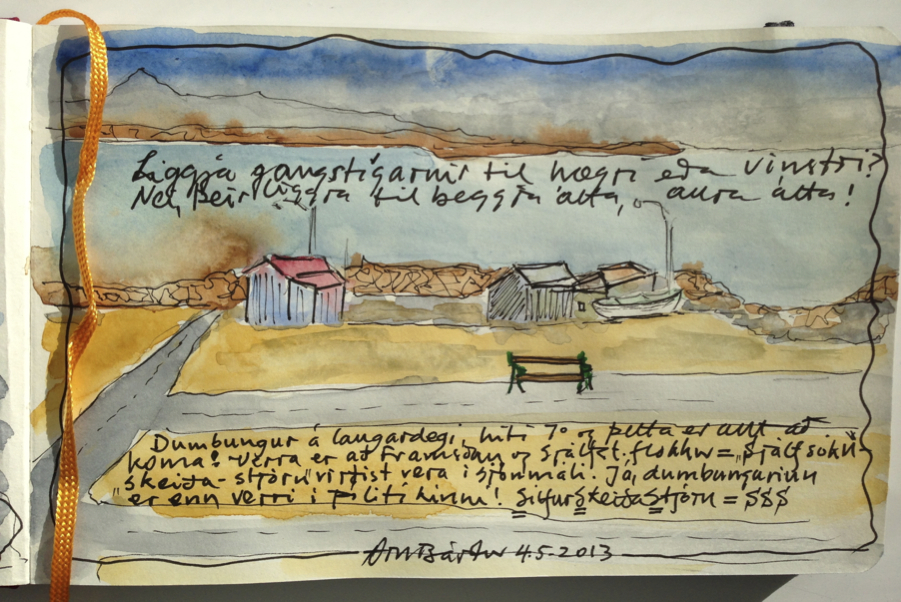 Liggja gangstígarnir til hægri eða vinstri?
Nei, þeir liggja til beggja átta, aura átta!
Dumbungur á laugardegi, hiti 7° og þetta er allt að
koma! Verra er að framsókn og Sjálfst.flokkur = "Sjálfsókn-
skeiða-stjórn" virðist vera í sjónmáli. Já, dumbungurinn
er enn verri í pólitíkinni! SilfurSkeiðaStjórn = $$$
4.5.2013